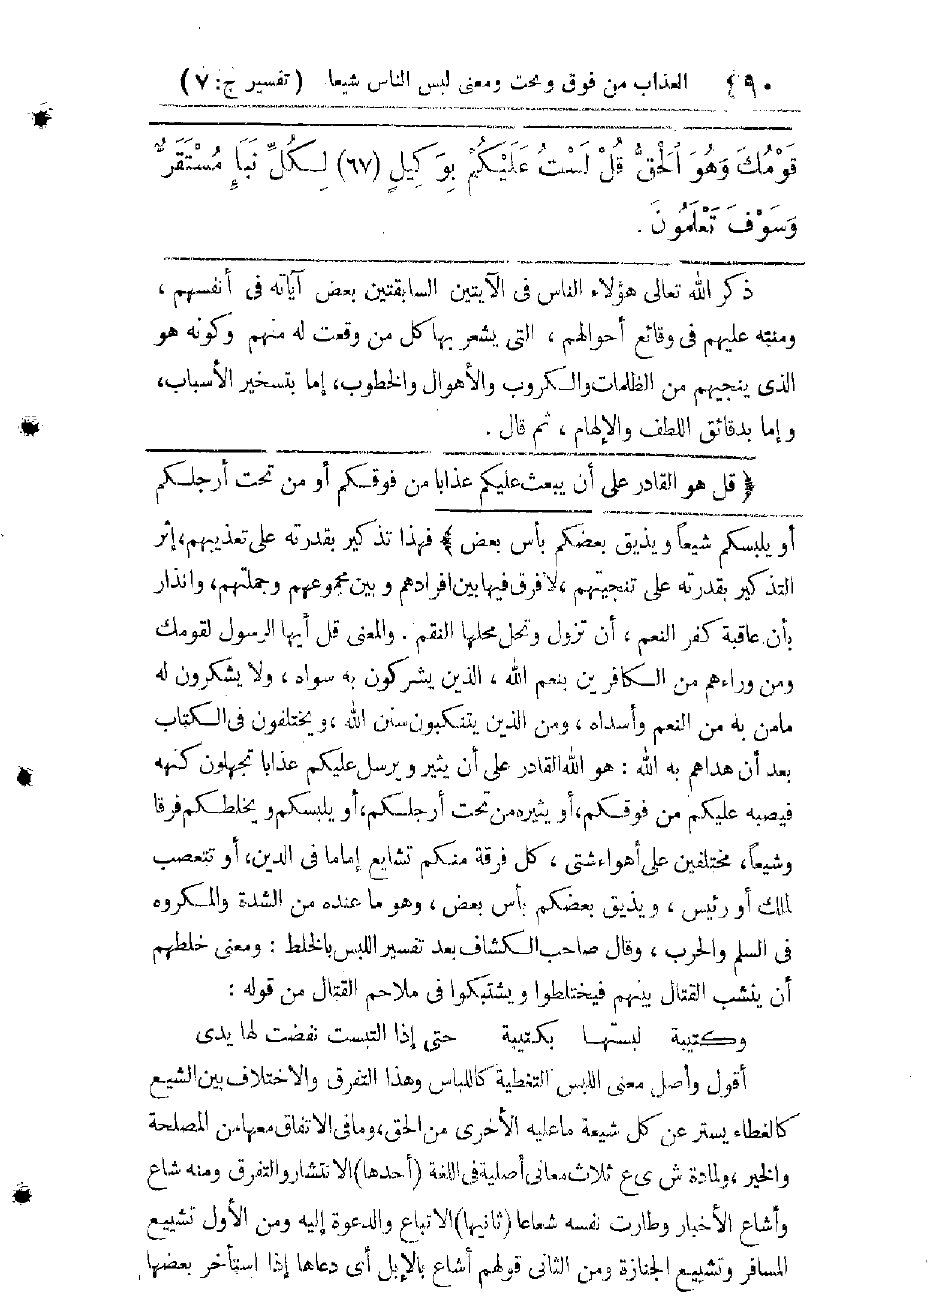 ٤٩٠ العذاب من فوق وتحت ومعنى لبس الناس شيعا (تفسير ج: ٧)
قَوْمُكَ وَهُوَ ٱلْحَقُّ قُلْ لَسْتُ عَلَيْكُمْ بِوَكِيلٍ (٦٧) لِكُلِّ نَبَإٍ مُسْتَقَرٌّ
وَسَوْفَ تَعْلَمُونَ .
ذكر الله تعالى هؤلاء الناس فى الآيتين السابقتين بعض آياته فى أنفسهم ،
ومنته عليهم فى وقائع أحوالهم ، التى يشعر بها كل من وقعت له منهم وكونه هو
الذى ينجيهم من الظلمات والكروب والأهوال والخطوب، إما بتسخير الأسباب،
وإما بدقائق اللطف والإلهام ، ثم قال .
﴿ قل هو القادر على أن يبعث عليكم عذابا من فوقكم أو من تحت أرجلكم
أو يلبسكم شيعاً ويذيق بعضكم بأس بعض ﴾ فهذا تذكير بقدرته على تعذيبهم، إثر
التذكير بقدرته على تنجيتهم ،لا فرق فيها بين افرادهم وبين مجموعهم وجملتهم، وانذار
بأن عاقبة كفر النعم ، أن تزول وتحل محلها النقم . والمعنى قل أيها الرسول لقومك
ومن وراءهم من الكافرين بنعم الله ، الذين يشركون به سواه ، ولا يشكرون له
مامن به من النعم وأسداه ، ومن الذين يتنكبون سنن الله ،ويختلفون فى الكتاب
بعد أن هداهم به الله : هو الله القادر على أن يثير ويرسل عليكم عذابا تجهلون كنهه
فيصبه عليكم من فوقكم، أو يثيره من تحت أرجلكم، أو يلبسكم ويخلطكم فرقا
وشيعاً، مختلفين على أهواء شتى ، كل فرقة منكم تشايع إماما فى الدين، أو تتعصب
لملك أو رئيس ، ويذيق بعضكم بأس بعض ، وهو ما عنده من الشدة والمكروه
فى السلم والحرب ، وقال صاحب الكشاف بعد تفسير اللبس بالخلط : ومعنى خلطهم
أن ينشب القتال بينهم فيختلطوا ويشتبكوا فى ملاحم القتال من قوله :
وكتيبة لبستها بكتيبة حتى إذا التبست نفضت لها يدى
أقول وأصل معنى اللبس التغطية كاللباس وهذا التفرق والاختلاف بين الشيع
كالغطاء يستر عن كل شيعة ما عليه الأخرى من الحق، وما فى الاتفاق معها من المصلحة
والخير ،ولمادة ش ى ع ثلاث معانى أصلية فى اللغة (أحدها) الانتشار والتفرق ومنه شاع
وأشاع الأخبار وطارت نفسه شعاعا (ثانيها) الاتباع والدعوة إليه ومن الأول تشييع
المسافر وتشييع الجنازة ومن الثانى قولهم أشاع بالإبل أى دعاها إذا استأخر بعضها